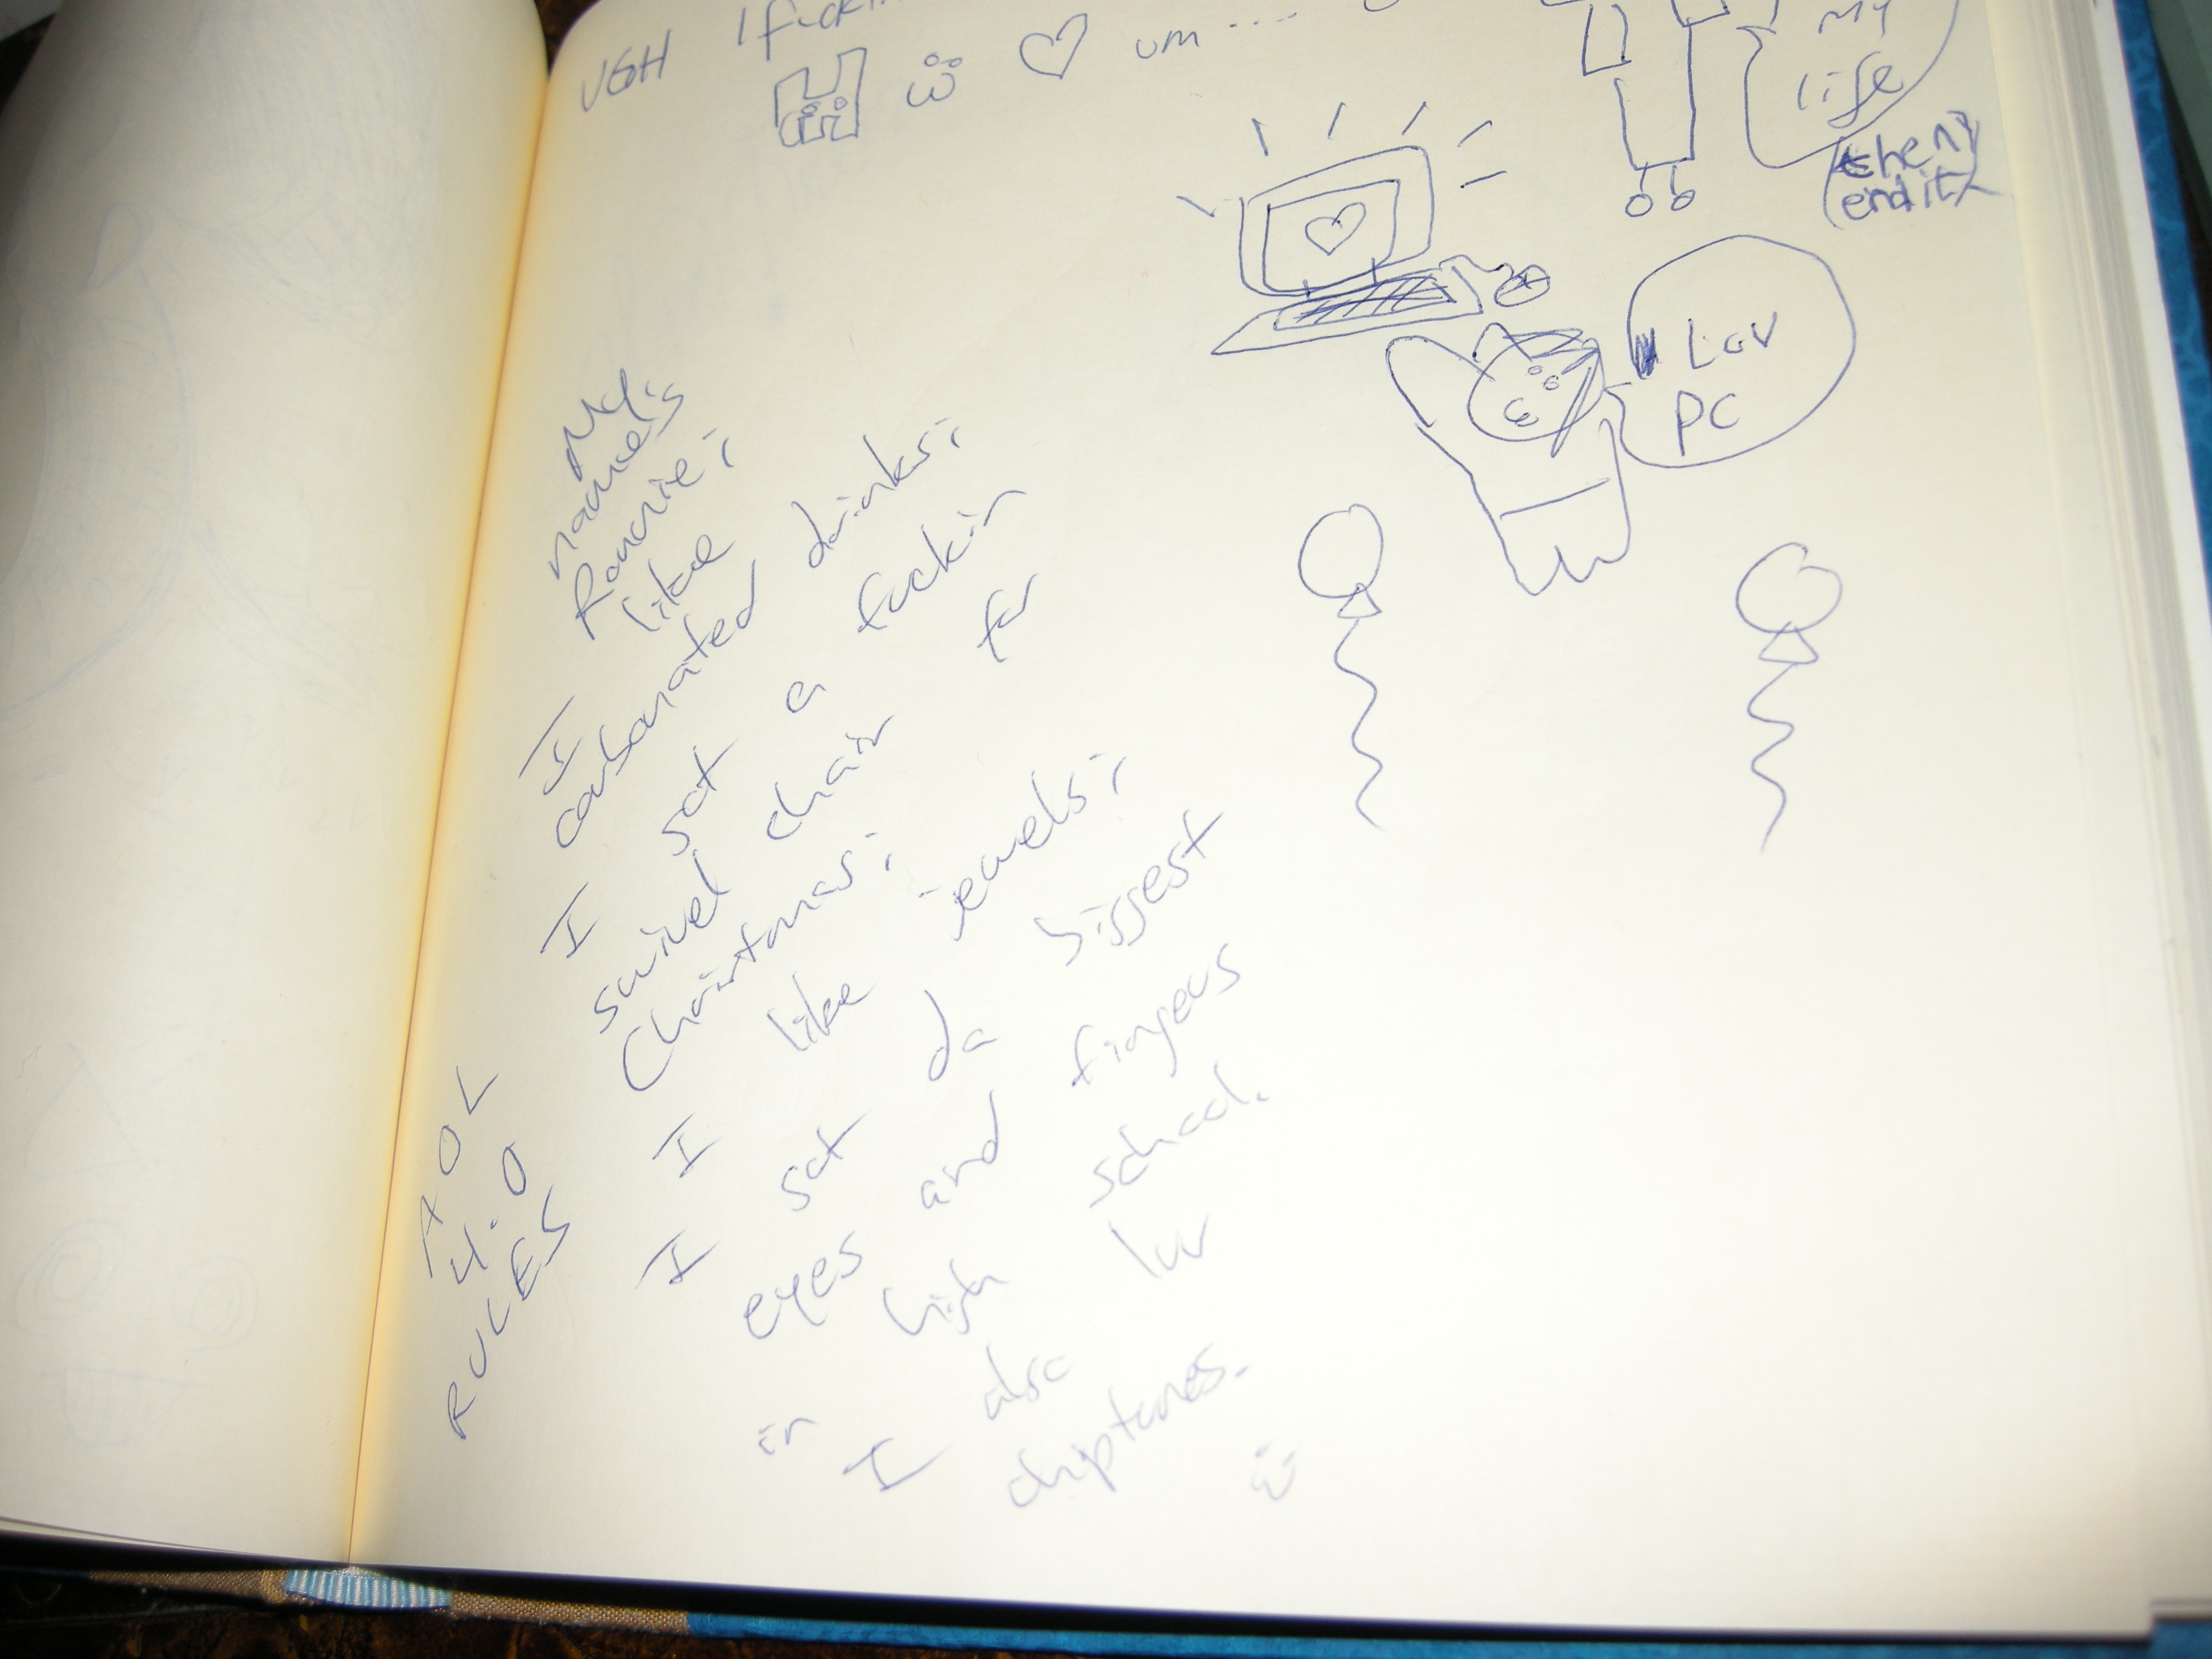 UGH I fuckin
um....
My
life
then
end it
I Luv
PC
My
name's
Ronnie;
I like
carbonated drinks;
I got a fuckin
swivel chair for
Christmas;
I like jewels;
I got da biggest
eyes and fingers
in high school.
I also luv
chiptunes.
AOL
4.0
RULES